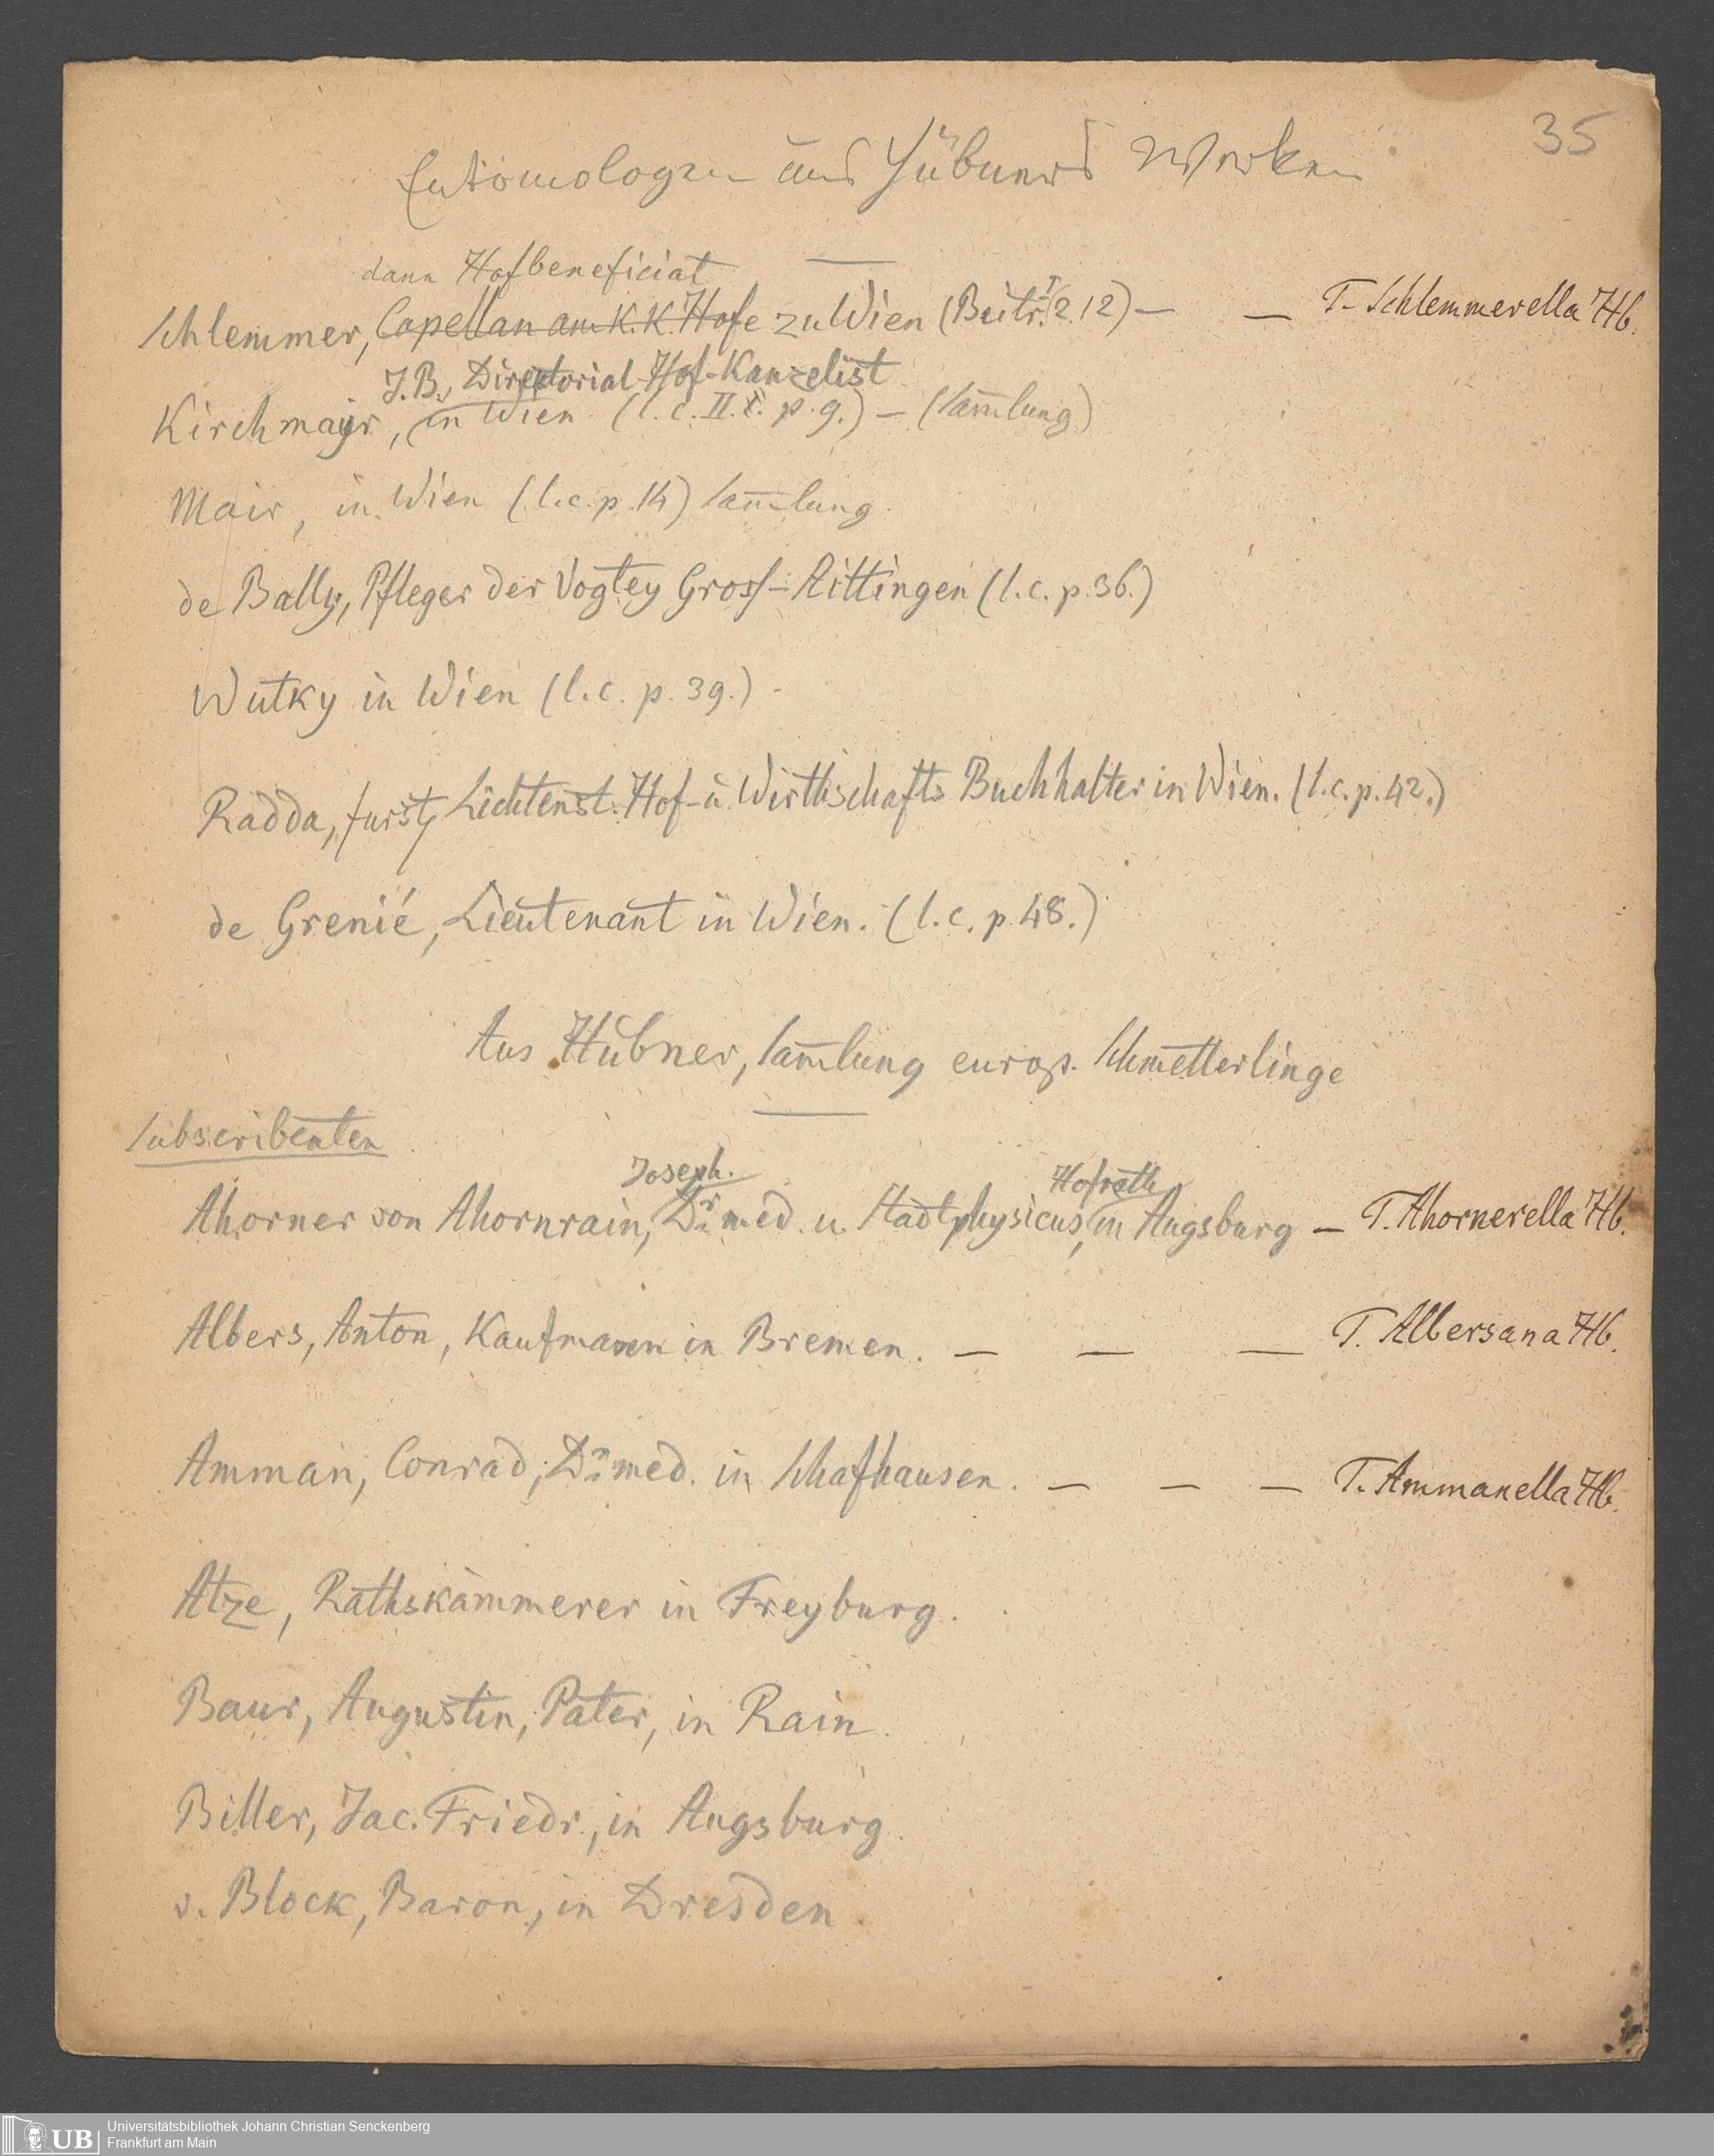 35
Entomologen aus Hübners Werken
dann Hofbeneficiat
Schlemmer, Capellan am K. K. Hofe zu Wien (Beitr. I. 2. 12) — — T. Schlemmerella Hb.
J. B., Directorial-Hof-Kanzelist
Kirchmayr, in Wien (l. c. II. 1. p. 9.) — (Sam̄lung)
Mair, in Wien (l. c. p. 14) Sam̄lung
de Bally, Pfleger der Vogtey Gross-Aittingen (l. c. p. 36.)
Wutky in Wien (l. c. p. 39.)
Radda, fürstl Lichtenst. Hof- u. Wirthschafts Buchhalter in Wien. (l. c. p. 42.)
de Grenié, Lieutenant in Wien. (l. c. p. 48.)
Aus Hübner, Sam̄lung europ. Schmetterlinge
Subscribenten
Joseph. Hofrath
Ahorner von Ahornrain, Dr. med. u. Stadtphysicus, in Augsburg — T. Ahornerella Hb.
Albers, Anton, Kaufmann in Bremen. — — — T. Albersana Hb.
Amman, Conrad, Dr. med. in Schafhausen. — — — T. Ammanella Hb.
Atze, Rathskämmerer in Freyburg.
Baur, Augustin, Pater, in Rain.
Biller, Jac. Friedr., in Augsburg.
v. Block, Baron, in Dresden.
UB Universitätsbibliothek Johann Christian Senckenberg
Frankfurt am Main